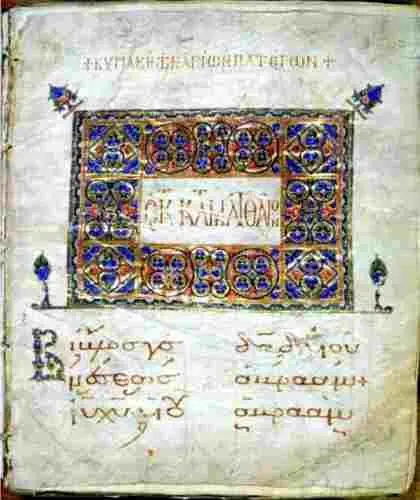 + ΚΥΡΙΑΚΗ Τ ΑΓΙΩΝ ΠΑΤΕΡΩΝ +
ΕΚ ΚΑΤ ΜΑΤΘΑΙΟΝ
Βίβλος γε
νέσεως
ἰῦ χῦ υἱοῦ
δαδ υἱοῦ
ἀβραάμ +
ἀβραὰμ